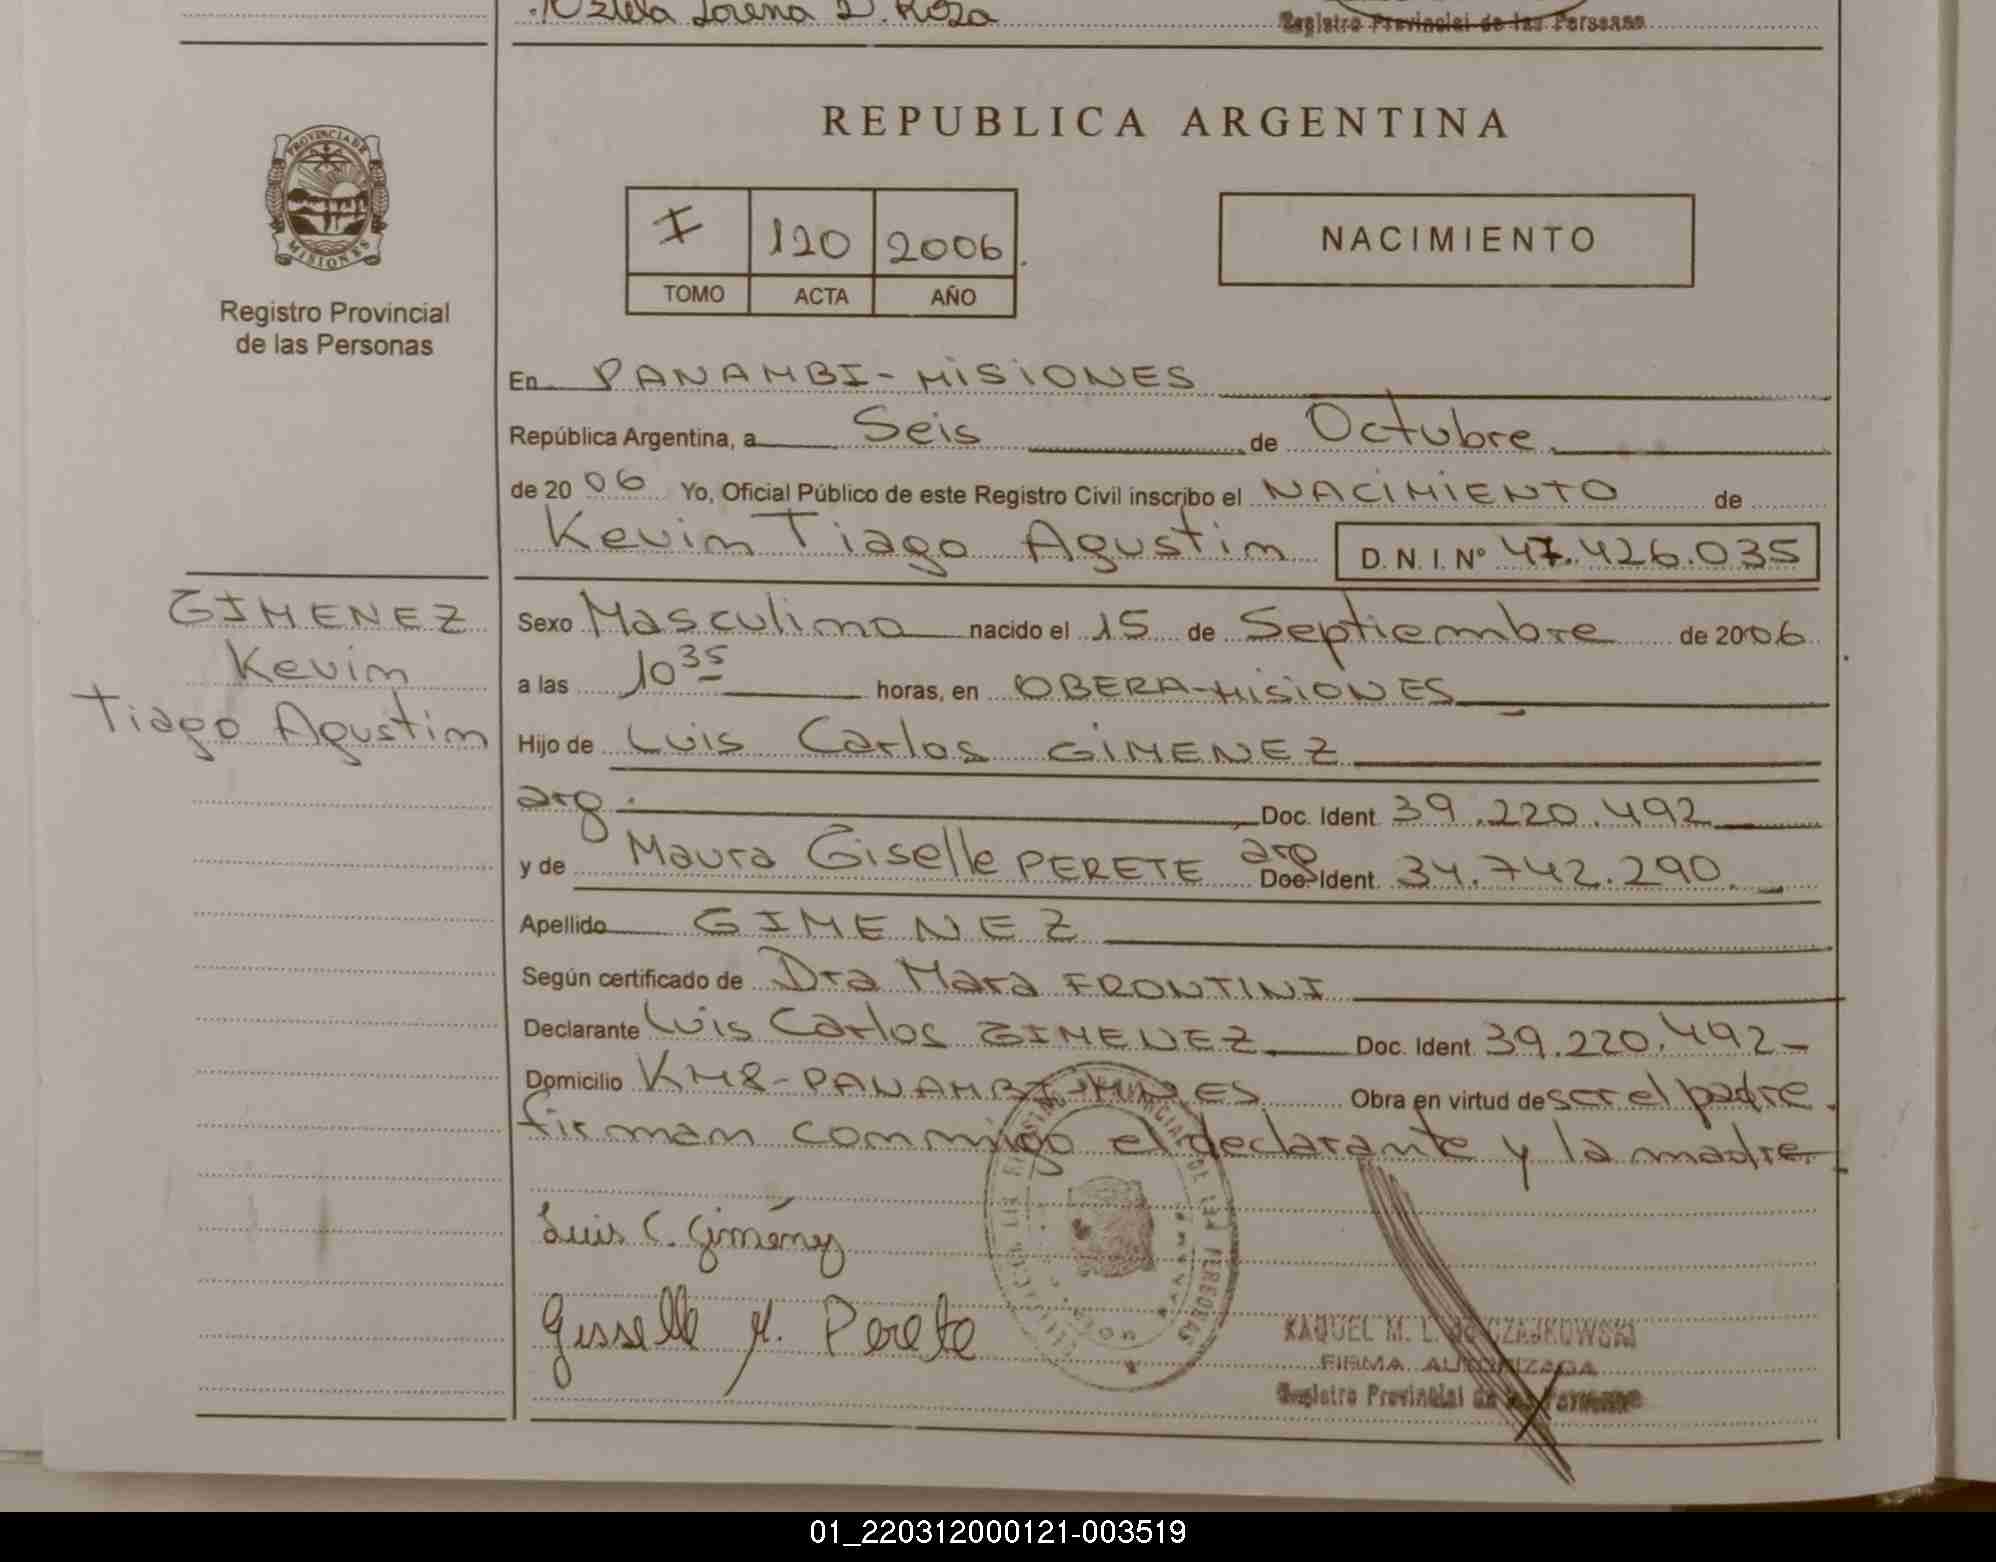 Lorena D. Roza
Registro Provincial de las Personas
PROVINCIA DE
MISIONES
Registro Provincial
de las Personas
REPUBLICA ARGENTINA
I 120 2006.
TOMO ACTA AÑO
NACIMIENTO
En PANAMBI-MISIONES
República Argentina, a Seis de Octubre
de 2006 Yo, Oficial Público de este Registro Civil inscribo el NACIMIENTO de
Kevin Tiago Agustin D. N. I. Nº 47.426.035
GIMENEZ
Kevin
Tiago Agustin
Sexo Masculino nacido el 15 de Septiembre de 2006
a las 10 35 horas, en OBERA-MISIONES
Hijo de Luis Carlos GIMENEZ
arg. Doc. Ident. 39.220.492
y de Maura Giselle PERETE arg Doc. Ident. 34.742.290.
Apellido GIMENEZ
Según certificado de Dra Mara FRONTINI
Declarante Luis Carlos GIMENEZ Doc. Ident. 39.220.492-
Domicilio KM8-PANAMBI-MNES Obra en virtud de ser el padre.
firman conmigo el declarante y la madre
Luis C. Giménez
Gisselle M. Perete
RAQUEL M. L.
FIRMA AUTORIZADA
Registro Provincial de las Personas
01_220312000121-003519